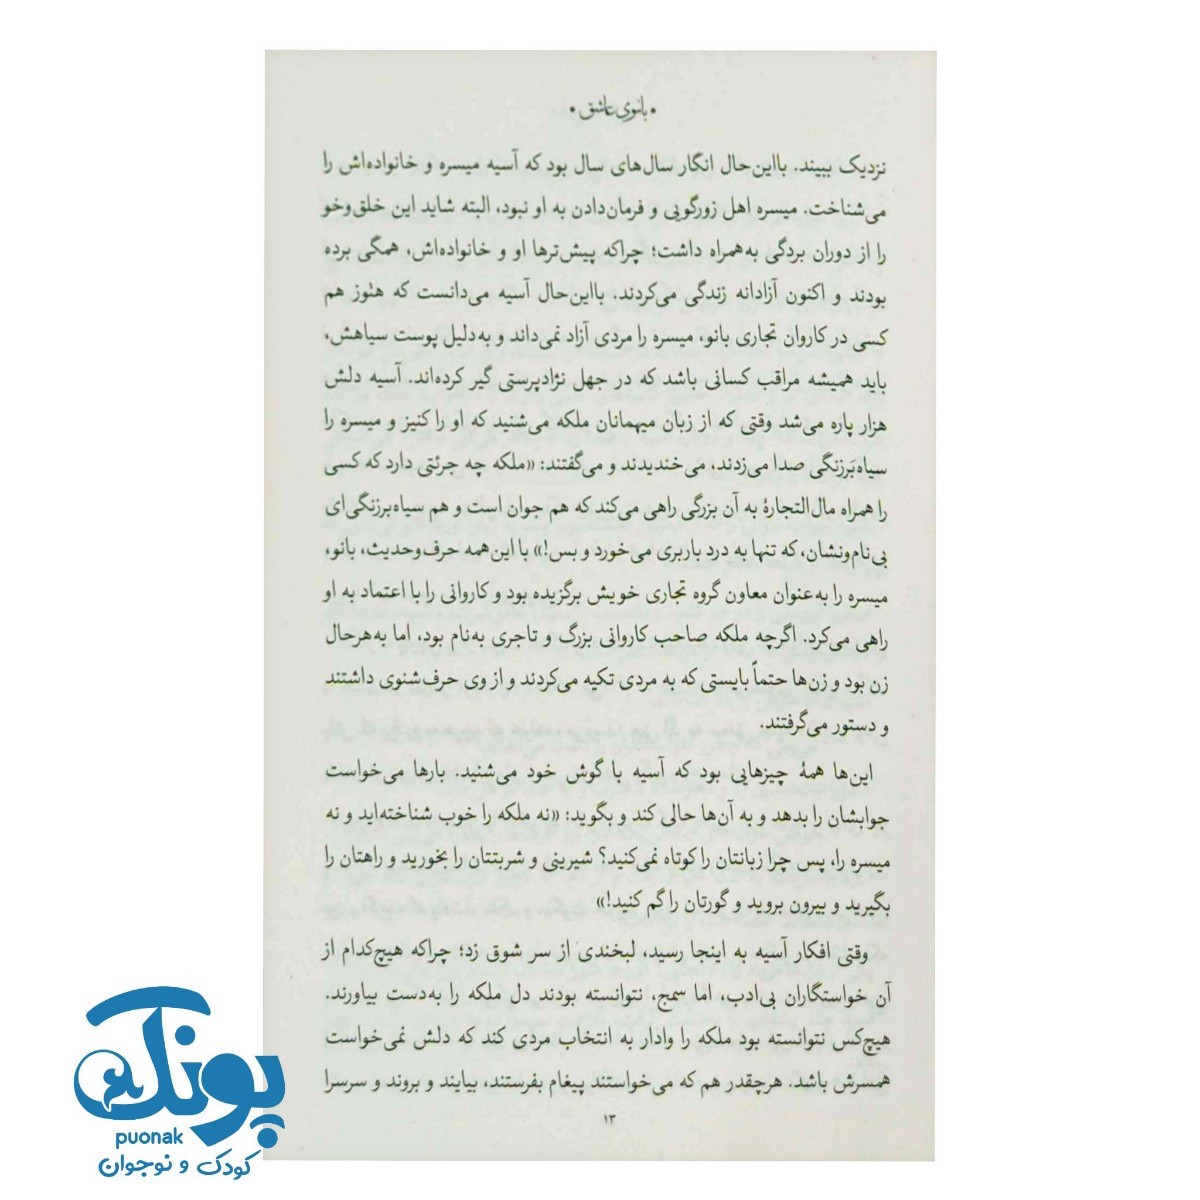 • بانوی عاشق •
نزدیک ببیند. بااین‌حال انگار سال‌های سال بود که آسیه میسره و خانواده‌اش را
می‌شناخت. میسره اهل زورگویی و فرمان‌دادن به او نبود، البته شاید این خلق‌وخو
را از دوران بردگی به‌همراه داشت؛ چراکه پیش‌ترها او و خانواده‌اش، همگی برده
بودند و اکنون آزادانه زندگی می‌کردند. بااین‌حال آسیه می‌دانست که هنوز هم
کسی در کاروان تجاری بانو، میسره را مردی آزاد نمی‌داند و به‌دلیل پوست سیاهش،
باید همیشه مراقب کسانی باشد که در جهل نژادپرستی گیر کرده‌اند. آسیه دلش
هزار پاره می‌شد وقتی که از زبان میهمانان ملکه می‌شنید که او را کنیز و میسره را
سیاه‌بَرزنگی صدا می‌زدند، می‌خندیدند و می‌گفتند: «ملکه چه جرئتی دارد که کسی
را همراه مال‌التجارهٔ به آن بزرگی راهی می‌کند که هم جوان است و هم سیاه‌برزنگی‌ای
بی‌نام‌ونشان، که تنها به درد باربری می‌خورد و بس!» با این‌همه حرف‌وحدیث، بانو،
میسره را به‌عنوان معاون گروه تجاری خویش برگزیده بود و کاروانی را با اعتماد به او
راهی می‌کرد. اگرچه ملکه صاحب کاروانی بزرگ و تاجری به‌نام بود، اما به‌هرحال
زن بود و زن‌ها حتماً بایستی که به مردی تکیه می‌کردند و از وی حرف‌شنوی داشتند
و دستور می‌گرفتند.
این‌ها همهٔ چیزهایی بود که آسیه با گوش خود می‌شنید. بارها می‌خواست
جوابشان را بدهد و به آن‌ها حالی کند و بگوید: «نه ملکه را خوب شناخته‌اید و نه
میسره را، پس چرا زبانتان را کوتاه نمی‌کنید؟ شیرینی و شربتتان را بخورید و راهتان را
بگیرید و بیرون بروید و گورتان را گم کنید!»
وقتی افکار آسیه به اینجا رسید، لبخندی از سر شوق زد؛ چراکه هیچ‌کدام از
آن خواستگاران بی‌ادب، اما سمج، نتوانسته بودند دل ملکه را به‌دست بیاورند.
هیچ‌کس نتوانسته بود ملکه را وادار به انتخاب مردی کند که دلش نمی‌خواست
همسرش باشد. هرچقدر هم که می‌خواستند پیغام بفرستند، بیایند و بروند و سرسرا
۱۳
پونک
puonak
کودک و نوجوان